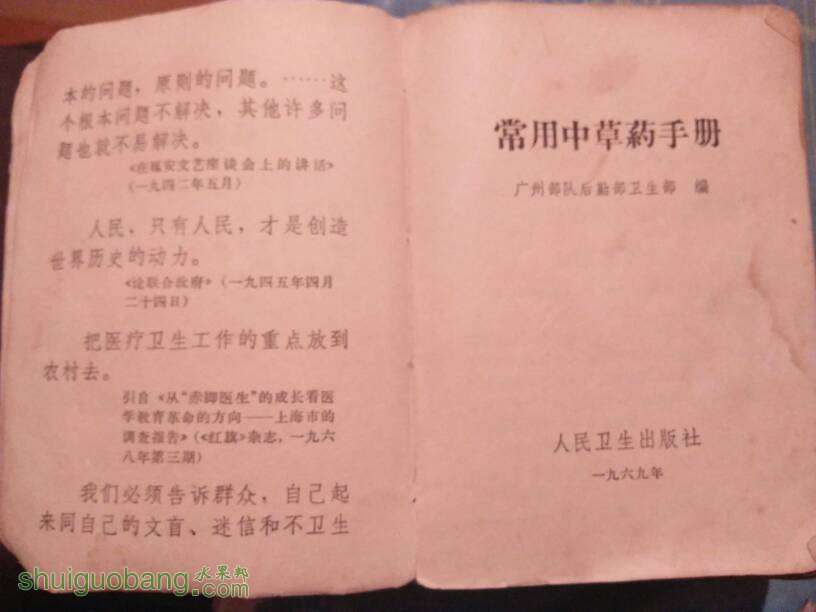 本的问题，原则的问题。……这
个根本问题不解决，其他许多问
题也就不易解决。
《在延安文艺座谈会上的讲话》
(一九四二年五月)
人民、只有人民，才是创造
世界历史的动力。
《论联合政府》(一九四五年四月
二十四日)
把医疗卫生工作的重点放到
农村去。
引自《从“赤脚医生”的成长看医
学教育革命的方向——上海市的
调查报告》(《红旗》杂志，一九六
八年第三期)
我们必须告诉群众，自己起
来同自己的文盲、迷信和不卫生
常用中草药手册
广州部队后勤部卫生部 编
人民卫生出版社
一九六九年
shuiguobang.com
水果邦